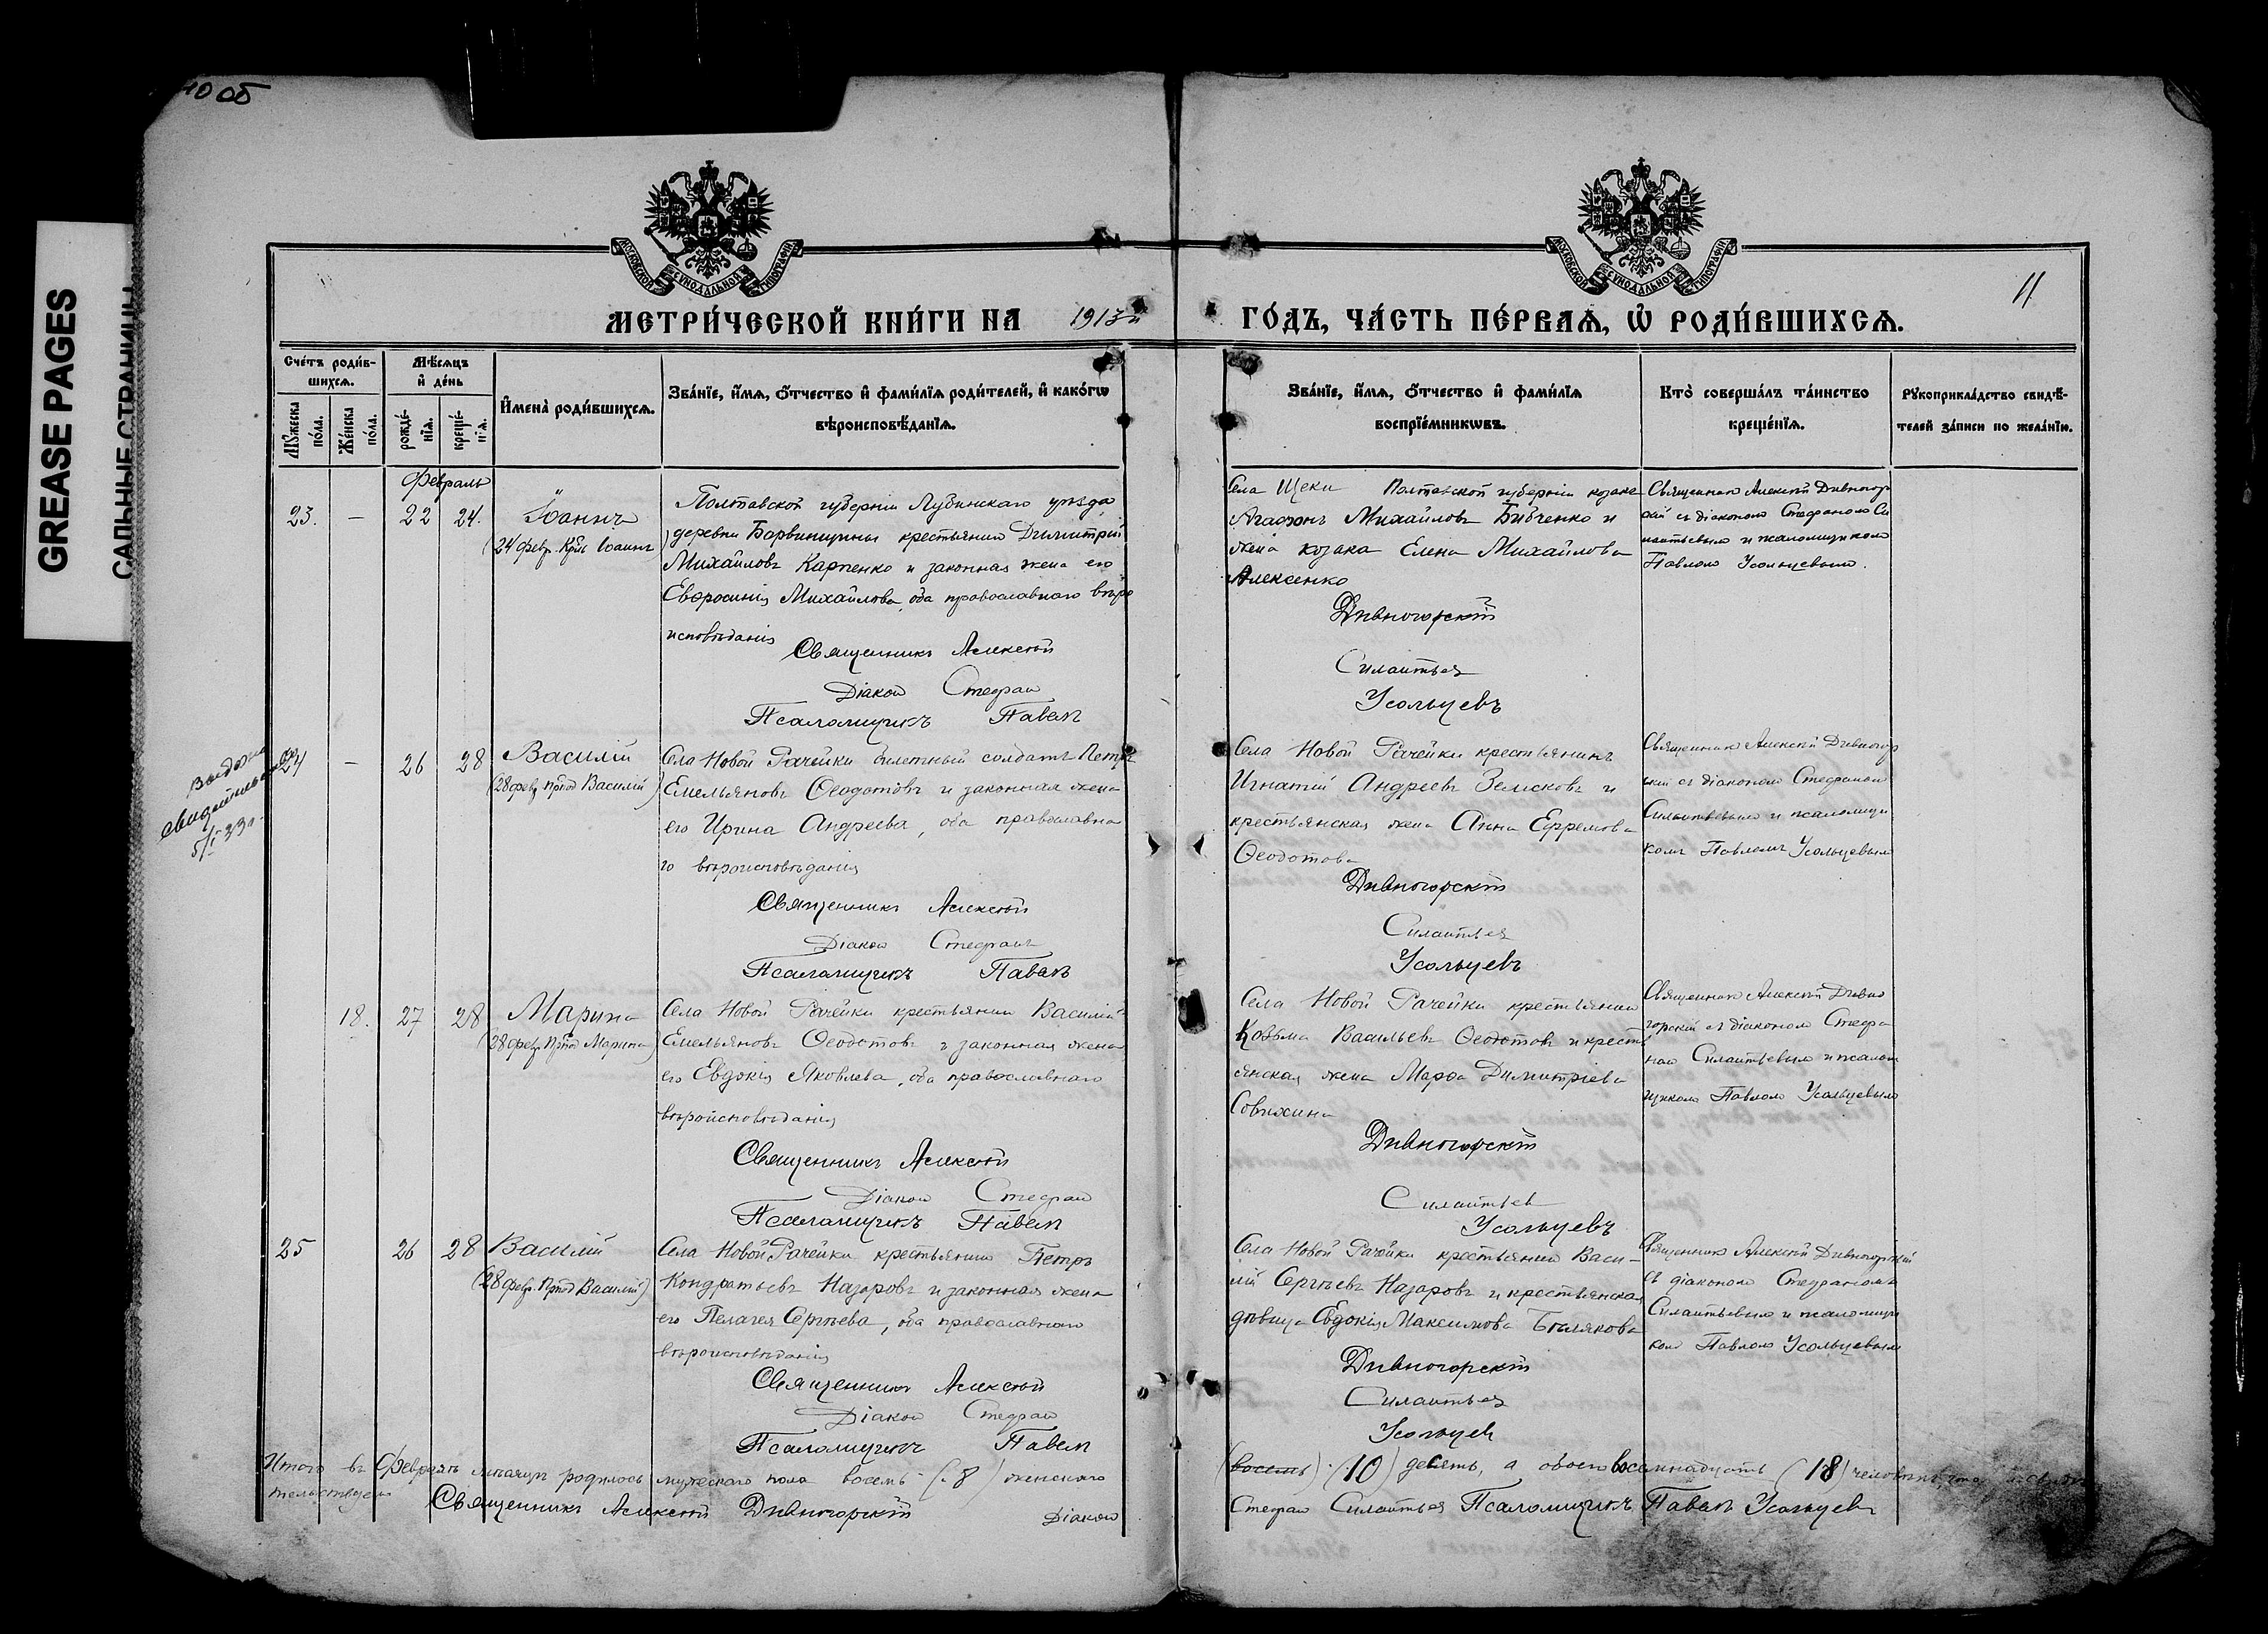 GREASE PAGES
САЛЬНЫЕ СТРАНИЦЫ
10 об
МОСКОВСКОЙ СѴНОДАЛЬНОЙ ТИПОГРАФІИ
МОСКОВСКОЙ СѴНОДАЛЬНОЙ ТИПОГРАФІИ
11
МЕТРИ́ЧЕСКОЙ КНИ́ГИ НА 1913й ГО́ДЪ, ЧА́СТЬ ПЕ́РВАѦ, Ѡ҆ РОДИ́ВШИХСѦ.
Сче́тъ роди́в-
шихсѧ.
Мꙋ́жеска по́ла.
Же́нска по́ла.
Мѣ́сѧцъ
и҆ де́нь
рожде́-
нїѧ.
креще́-
нїѧ.
И҆мена̀ роди́вшихсѧ.
Зва́нїе, и҆́мѧ, ѻ҆́тчество и҆ фами́лїѧ роди́телей, и҆ како́гѡ
вѣроисповѣ́данїѧ.
Зва́нїе, и҆́мѧ, ѻ҆́тчество и҆ фами́лїѧ
воспрїе́мникѡвъ.
Кто̀ соверша́лъ та́инство
креще́нїѧ.
Рꙋкоприкла́дство свидѣ́-
телей за́писи по жела́нїю.
Февраль
23. — 22 24. Іоаннъ
(24 февр. Крѣс Іоанна)
Полтавской губерніи Лубинскаго уѣзда
деревни Барвинщины крестьянин Димитрій
Михайловъ Карпенко и законная жена его
Евфросинія Михайлова, оба православнаго вѣро
исповѣданія
Священникъ Алексѣй
Діакон Стефан
Псаломщикъ Павел
Села Щеки Полтавской губерніи козакъ
Агафонъ Михайловъ Бибченко и
жена козака Елена Михайлова
Алексенко
Дивногорскій
Силантьев
Усольцевъ
Священник Алексѣй Дивногор
скій съ діаконом Стефаном Си
лантьевым и псаломщиком
Павлом Усольцевым.
Выдано
свидѣтельство
5/I 33г
24 — 26 28 Василій
(28 февр. Прпод Василій)
Села Новой Рачейки билетный солдатъ Петръ
Емельяновъ Ѳеодотовъ и законная жена
его Ирина Андреева, оба православна
го вѣроисповѣданія
Священникъ Алексѣй
Діакон Стефанъ
Псаломщикъ Павелъ
Села Новой Рачейки крестьянинъ
Игнатій Андреевъ Земсковъ и
крестьянская жена Анна Ефремова
Ѳеодотова
Дивногорскій
Силантьев
Усольцевъ
Священник Алексѣй Дивногор
скій съ діаконом Стефаном
Силантьевым и псаломщи
комъ Павломъ Усольцевым
18. 27 28 Марина
(28 февр. Прпод Марина)
Села Новой Рачейки крестьянин Василій
Емельяновъ Ѳеодотовъ и законная жена
его Евдокія Яковлева, оба православнаго
вѣроисповѣданія
Священникъ Алексѣй
Діакон Стефан
Псаломщикъ Павел
Села Новой Рачейки крестьянин
Козьма Васильевъ Ѳеодотовъ и крестъ
янская жена Марфа Димитріева
Совихина
Дивногорскій
Силантьев
Усольцевъ
Священник Алексѣй Дивно
горскій съ діаконом Стефа
ном Силантьевым и псалом
щиком Павлом Усольцевым
25 26 28 Василій
(28 февр. Прпод Василій)
Села Новой Рачейки крестьянин Петръ
Кондратьевъ Назаровъ и законная жена
его Пелагея Сергѣева, оба православнаго
вѣроисповѣданія
Священникъ Алексѣй
Діакон Стефан
Псаломщикъ Павел
Села Новой Рачейки крестьянин Васи-
лій Сергѣевъ Назаровъ и крестьянская
дѣвица Евдокія Максимова Бѣлякова
Дивногорскій
Силантьев
Усольцев
Священник Алексѣй Дивногорскій
съ діаконом Стефаномъ
Силантьевым и псаломщи
ком Павлом Усольцевым
Итого въ Февралѣ мѣсяцѣ родилось мужескаго пола восемь (8) женскаго (восемь) (10) девять, а обоего восемнадцать (18) человѣкъ
тельствуем Священникъ Алексѣй Дивногорскій Діакон Стефан Силантьев Псаломщикъ Павелъ Усольцевъ